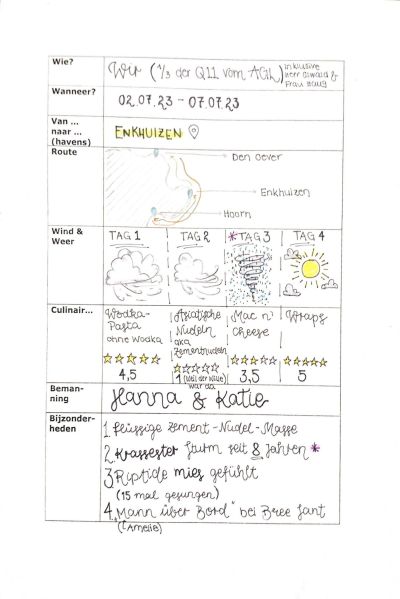 Wie?
Wir (1/3 der Q11 vom AGL) inklusive
Herr Oswald &
Frau Haug
Wanneer?
02.07.23 - 07.07.23
Van ...
naar ...
(havens)
ENKHUIZEN
Route
Den Oever
Enkhuizen
Hoorn
Wind &
Weer
TAG 1
TAG 2
*TAG 3
TAG 4
Culinair...
Wodka-
Pasta
ohne Wodka
4,5
Asiatische
Nudeln
aka
Zementnudeln
1 (weil der Wille
war da
Mac n'
Cheese
3,5
Wraps
5
Beman-
ning
Hanna & Katie
Bijzonder-
heden
1. flüssige Zement-Nudel-Masse
2. Krassester Sturm seit 8 Jahren *
3. Riptide mies gefühlt
(15 mal gesungen)
4. "Mann über Bord" bei Bree Sant
(Amelie)